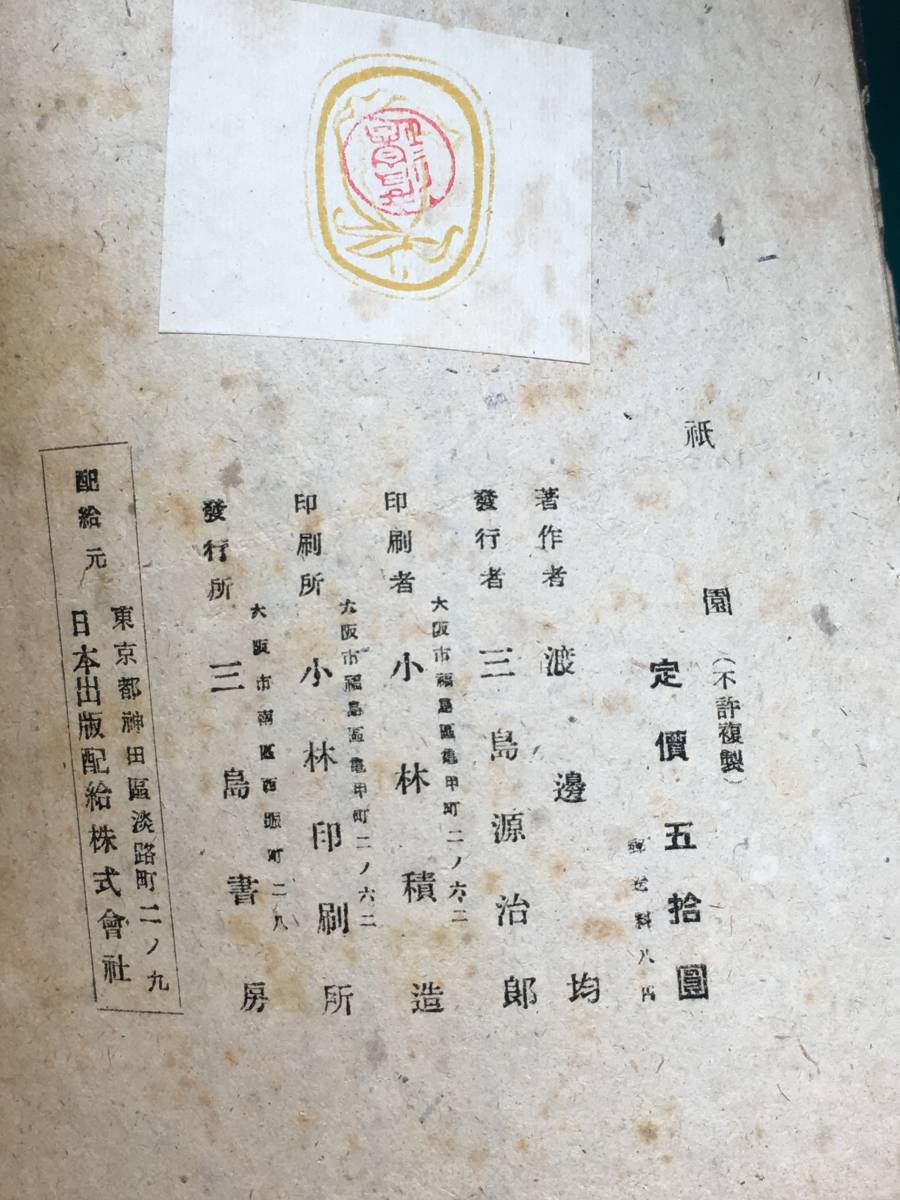 祇園
(不許複製)
定價五拾圓
郵送料八円
著作者 渡邊均
發行者 三島源治郎
大阪市福島區亀甲町二ノ六二
印刷者 小林積造
大阪市福島區亀甲町二ノ六二
印刷所 小林印刷所
大阪市南區西堀町二八
發行所 三島書房
東京都神田區淡路町二ノ九
配給元 日本出版配給株式會社